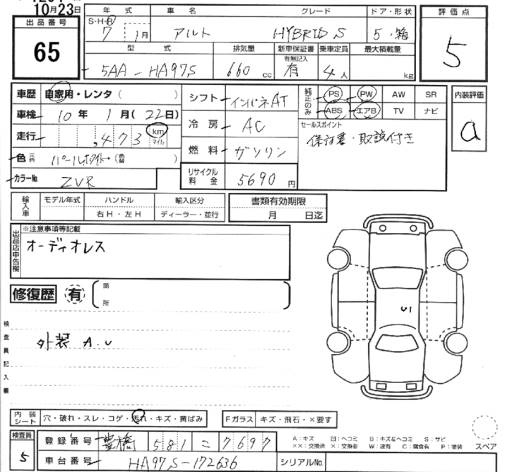 10月23日
出品番号 65
年式 車名 グレード ドア・形状 評価点
S・H・R 7 1月 アルト HYBRID S 5・箱 5
型式 排気量 新車保証書 有無記入 乗車定員 最大積載量
5AA-HA97S 660cc 有 4人 kg
車歴 自家用・レンタ( )
車検 10年1月(22日)
走行 ,473 km マイル
色 パールホワイト
カラーNo. ZVR
シフト インパネAT
冷房 AC
燃料 ガソリン
リサイクル料金 5690円
純正のみ PS PW AW SR
ABS エアB TV ナビ
セールスポイント
保証書・取説付き
内装評価 a
輸入車 モデル年式 ハンドル 輸入区分
右H・左H ディーラー・並行
書類有効期限
月 日迄
出品店申告欄 ※注意事項等記載
オーディオレス
修復歴 有 箇所
検査員記入欄
外装 A.U
U1
内装シート 穴・破れ・スレ・コゲ・汚れ・キズ・黄ばみ
Fガラス キズ・飛石・×要す
検査員 5
登録番号 豊橋 581 ニ 7697
車台番号 HA97S-172636
シリアルNo.
スペア